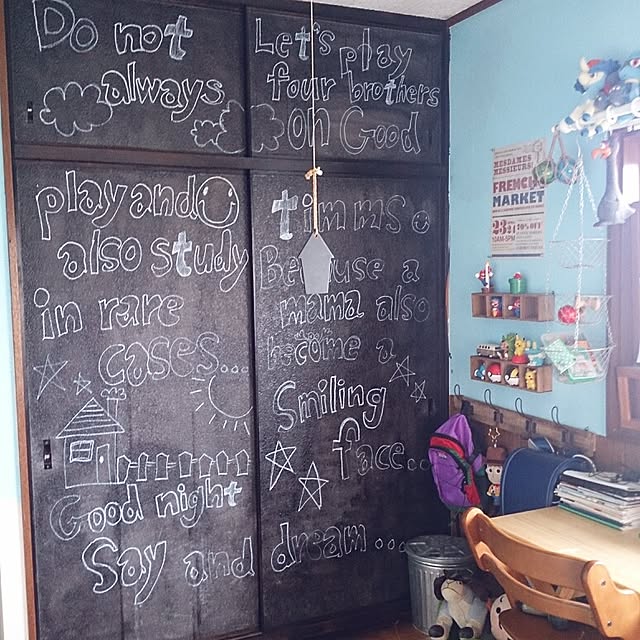 Do not
always
play and
also study
in rare
cases...
Good night
Say and dream...
Let's play
four brothers
on Good
timms
Because a
mama also
become a
Smiling
face...
MESDAMES
MESSIEURS!
FRENCH
MARKET
10AM-5PM